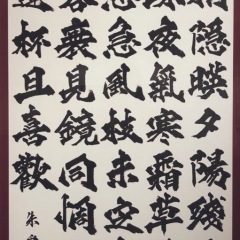 隱暎夕陽殘
夜氣寒霜草
急風枝未定
衰見鏡同惆
杯且喜歡
朱